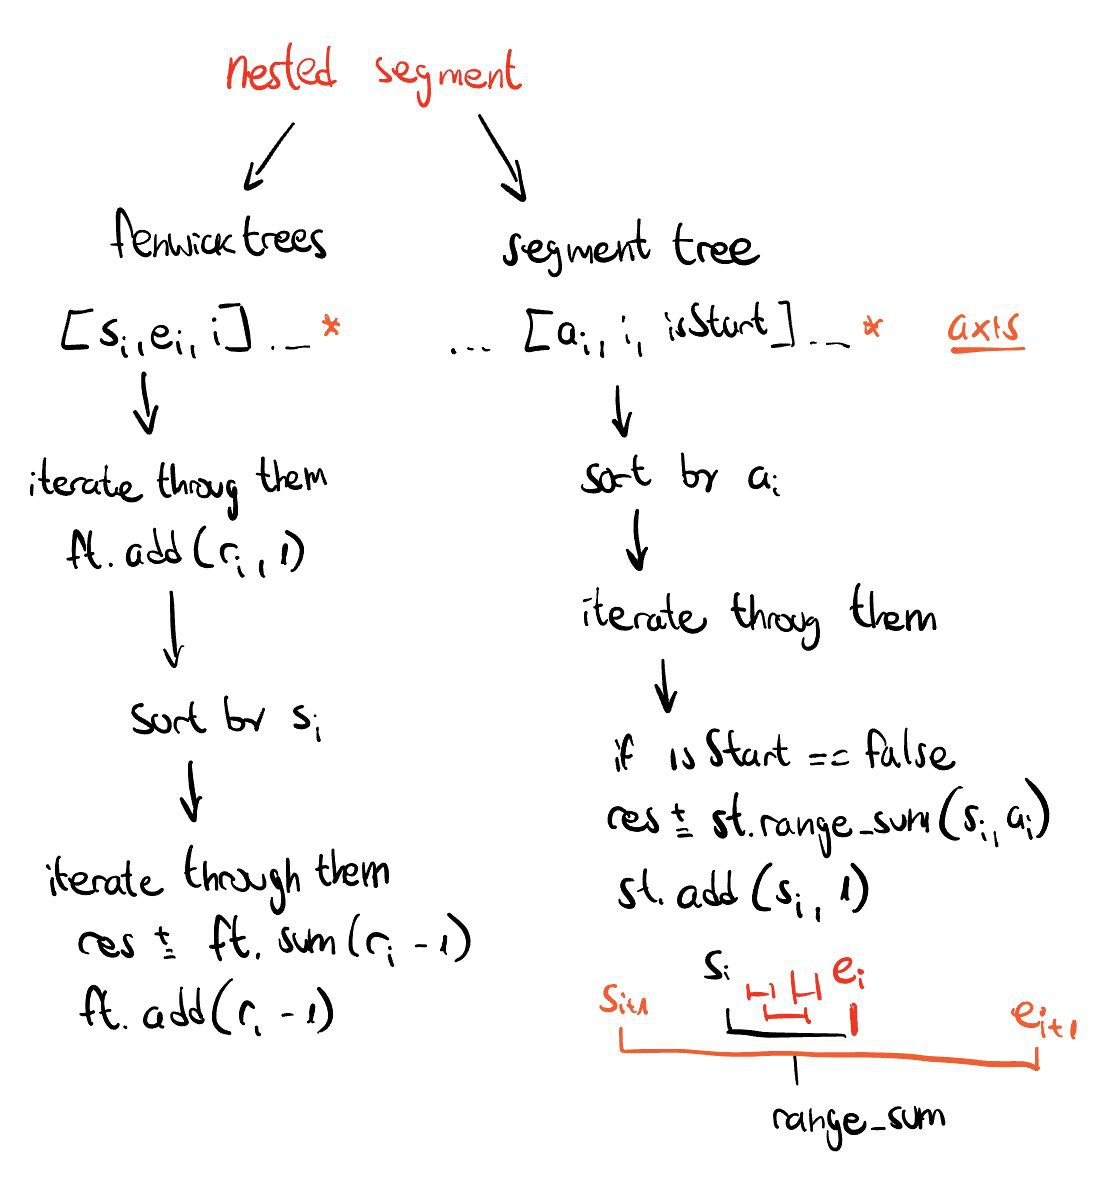 nested segment
fenwick trees
[si, ei, i] ... *
iterate throug them
ft. add (ri, 1)
sort by si
iterate through them
res += ft. sum (ri - 1)
ft. add (ri - 1)
segment tree
... [ai, i, isStart] ... * axis
sort by ai
iterate throug them
if isStart == false
res += st.range_sum (si, ai)
st. add (si, 1)
si ei
si+1 ei+1
range_sum